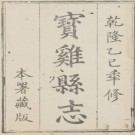 乾隆乙巳年修
寶雞縣志
本署藏版